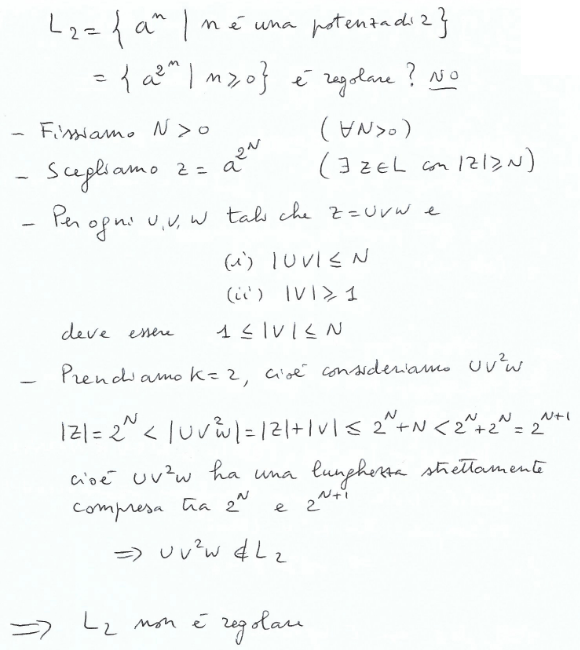 L₂ = { aⁿ | n é una potenza di 2 }
= { a^{2^n} | n ⩾ 0 } é regolare ? NO
- Fissiamo N > 0 (∀N>0)
- Scegliamo z = a^{2^N} (∃ z ∈ L con |z| ⩾ N)
- Per ogni u, v, w tali che z = uvw e
(i) |uv| ≤ N
(ii) |v| ⩾ 1
deve essere 1 ≤ |v| ≤ N
- Prendiamo k = 2, cioé consideriamo uv²w
|z| = 2^N < |uv²w| = |z| + |v| ≤ 2^N + N < 2^N + 2^N = 2^{N+1}
cioé uv²w ha una lunghezza strettamente
compresa tra 2^N e 2^{N+1}
⇒ uv²w ∉ L₂
⇒ L₂ non é regolare